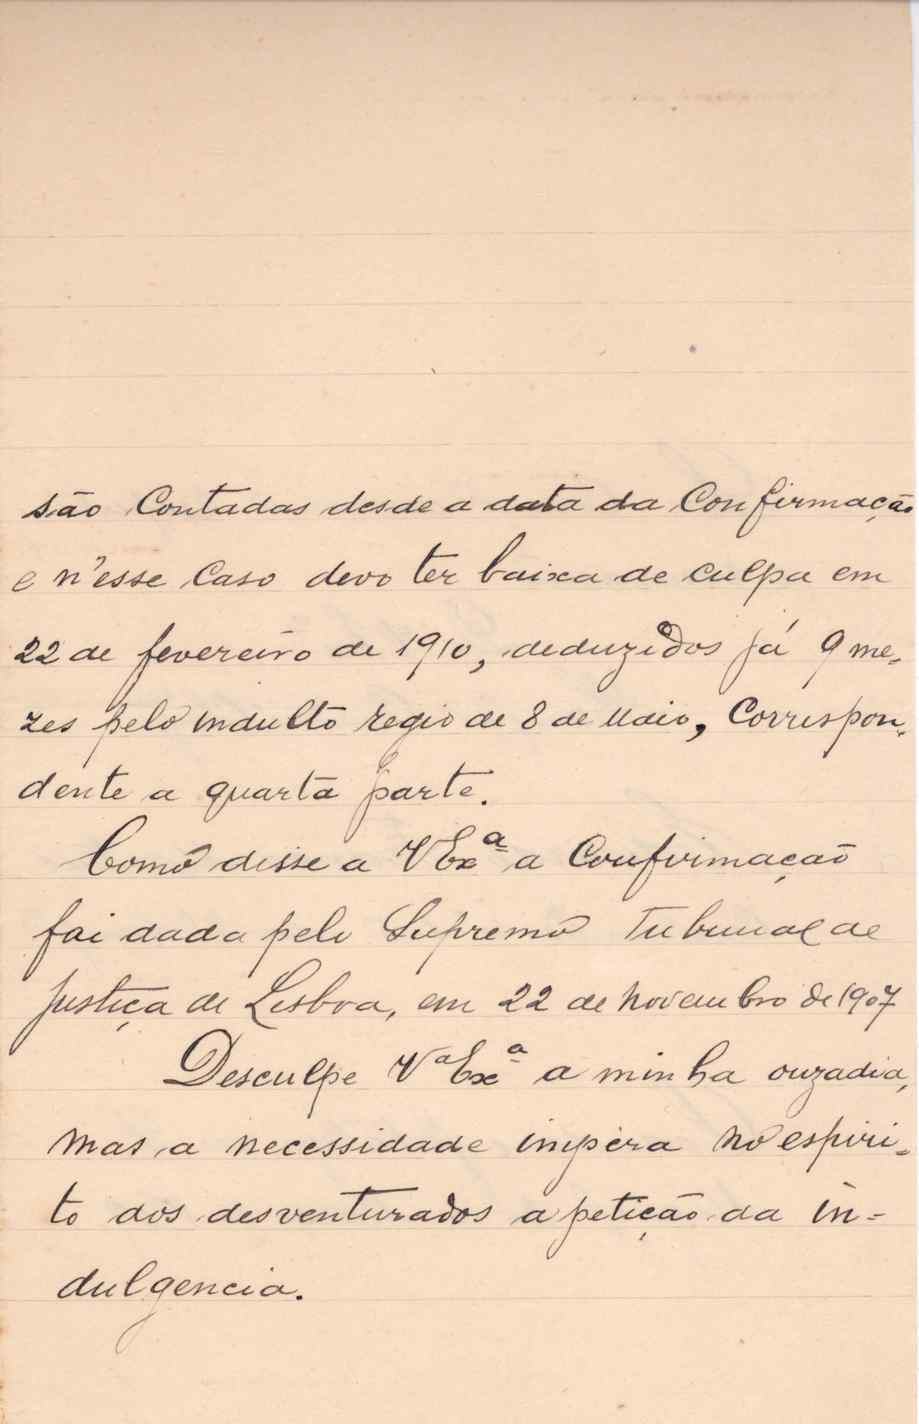 são Contadas desde a data da Confirmação
e n'esse Caso devo ter baixa de culpa em
22 de fevereiro de 1910, deduzidos já 9 me-
zes pelo indulto regio de 8 de Maio, Correspon-
dente a quarta parte.
Como disse a VExª a Confirmação
foi dada pelo Supremo Tribunal de
Justiça de Lisboa, em 22 de Novembro de 1907
Desculpe VªExª a minha ouzadia,
mas a necessidade impéra no espiri-
to dos desventurados a petição da in-
dulgencia.